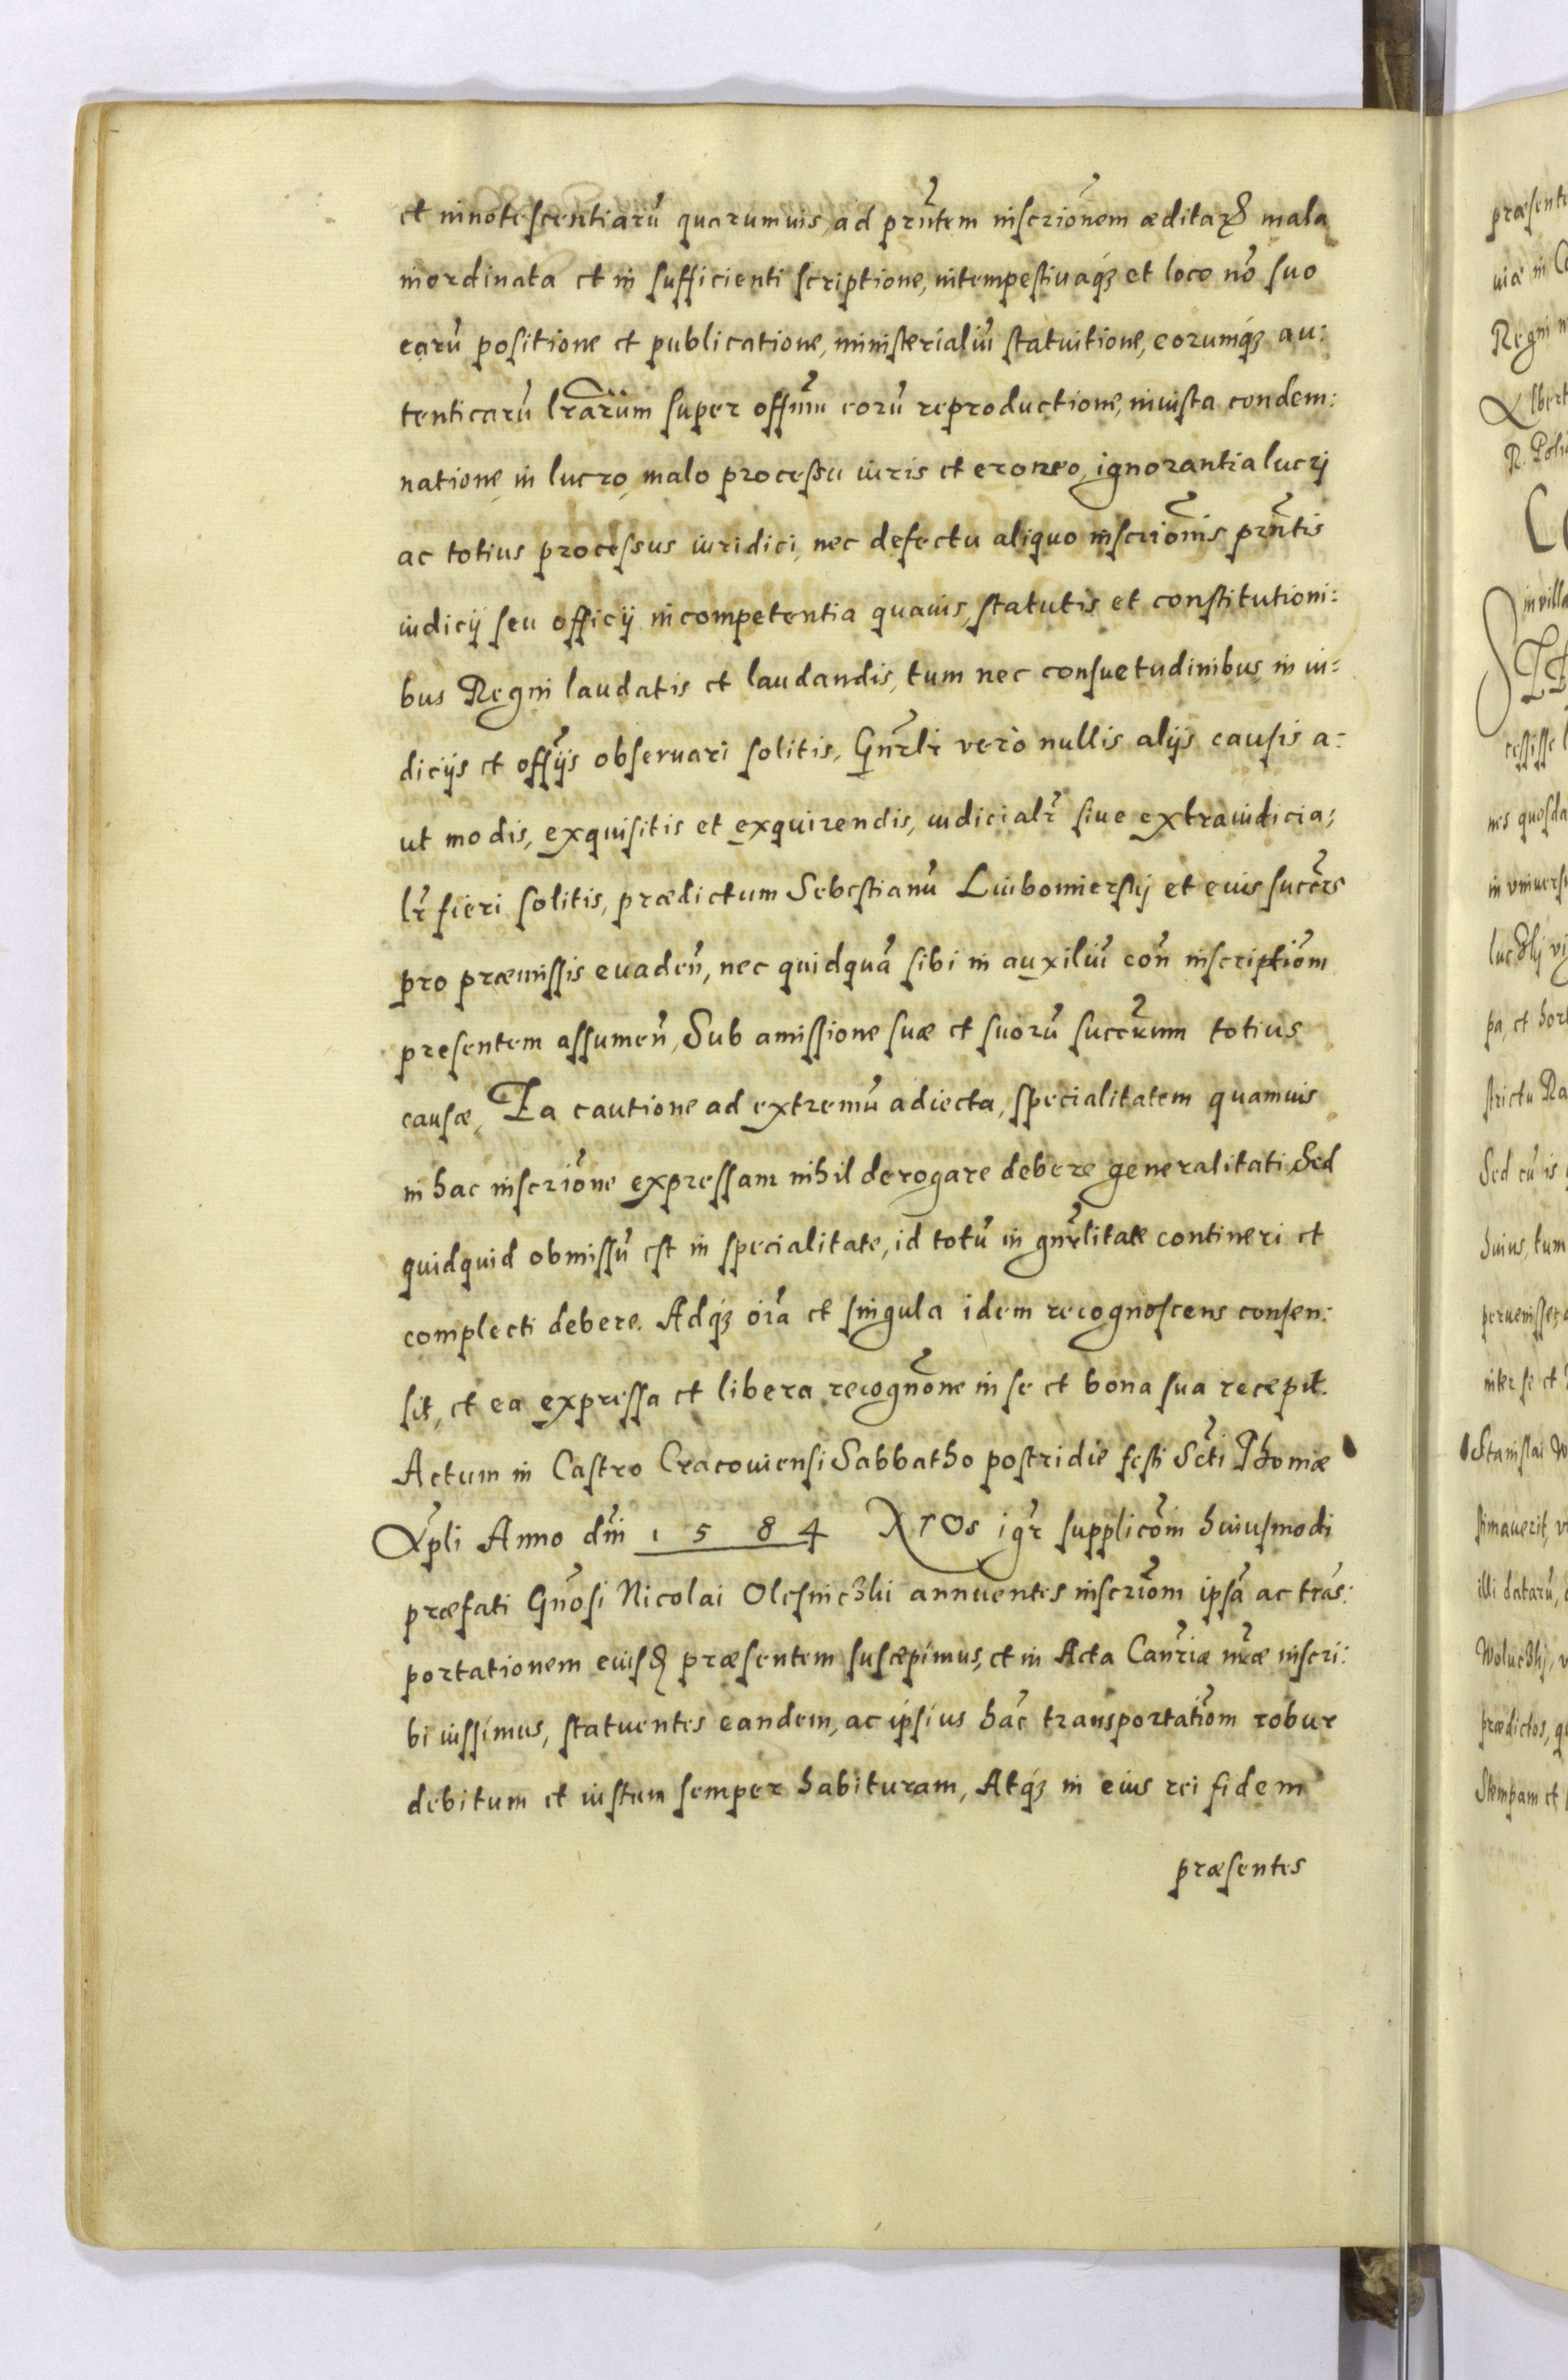 et innotescentiarũ quarumuis, ad prñtem inscriõnem æditaꝝ mala
inordinata et in sufficienti scriptione, intempestiuaqꝫ et loco nõ suo
earũ positione et publicatione, ministerialiũ statuitione, eorumqꝫ au:
tenticarũ lr̃arũm super off̃inũ eorũ reproductione, iniusta condem:
natione, in lucro, malo processu iuris et eroneo, ignorantia lucrj
ac totius processus iuridici, nec defectu aliquo inscriõnis prñtis
iudicij seu officij incompetentia quauis, statutis et constitutioni:
bus Regni laudatis et laudandis, tum nec consuetudinibus, in iu:
dicijs et offijs obseruari solitis, Gnr̃lr vero nullis alijs causis a:
ut modis, exquisitis et exquirendis, iudicialr̃ siue extraiudicia:
lr̃ fieri solitis, prædictum Sebestianũ Liubomierskj et eius succr̃s
pro præmissis euadeñ, nec quidquã sibi in auxiliũ coñ inscriptiõm
presentem assumeñ, Sub amissione suæ et suorũ succr̃um totius
causæ, Ea cautione ad extremũ adiecta, specialitatem quamuis
in hac inscriõne expressam nihil derogare debere generalitati, Sed
quidquid obmissũ est in specialitate, id totũ in gnr̃litate contineri et
complecti debere. Adqꝫ oĩa et singula idem recognoscens consen:
sit, et ea expressa et libera recognõne in se et bona sua recepit.
Actum in Castro Cracouiensi Sabbatho postridie festi Scti Thomæ
Apli Anno dñi 1584 Nos igr̃ supplicõm huiusmodi
præfati Gnõsi Nicolai Olesniczki annuentes inscriõm ipsã ac trãs:
portationem eiusꝺ præsentem suscepimus, et in Acta Cañriæ nr̃æ inscri:
bi iussimus, statuentes eandem, ac ipsius hãc transportatiõm robur
debitum et iustum semper habituram, Atqꝫ in eius rei fidem
præsentes
præsente
Regni
Albert
in villa
cessisse
nis quosda
in vniuers
pa, et hor
strictu Ra
Sed cũ is
huius, tum
peruenisset,
inter se et
Stanislai W
illi datarũ,
prædictos, q
Stempam et